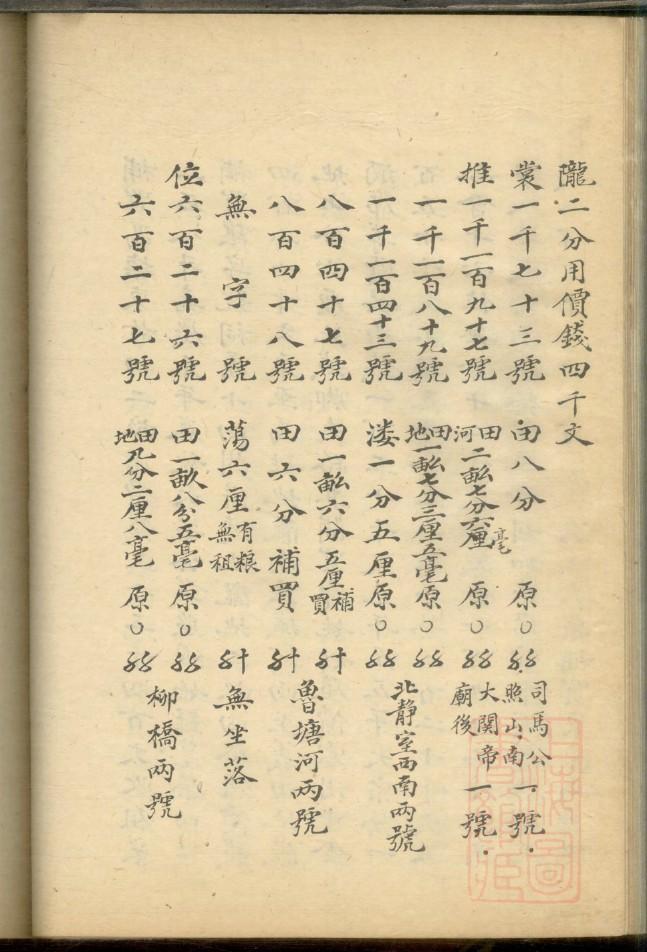 隴二分用價錢四千文
裳一千七十三號 田八分 原〇 司馬公照山南一號
推一千一百九十七號 田河二畝七分六厘毫 原〇 大關帝廟後一號
一千一百八十九號 田地一畝七分三厘五毫 原〇
一千一百四十三號 漊一分五厘 原〇 北靜室西南兩號
八百四十七號 田一畝六分五厘補買
八百四十八號 田六分補買 魯塘河兩號
無字號 蕩六厘有粮無租 無坐落
位六百二十六號 田一畝八分五毫 原〇
六百二十七號 田地九分二厘八毫 原〇 柳橋兩號
上海圖書館藏